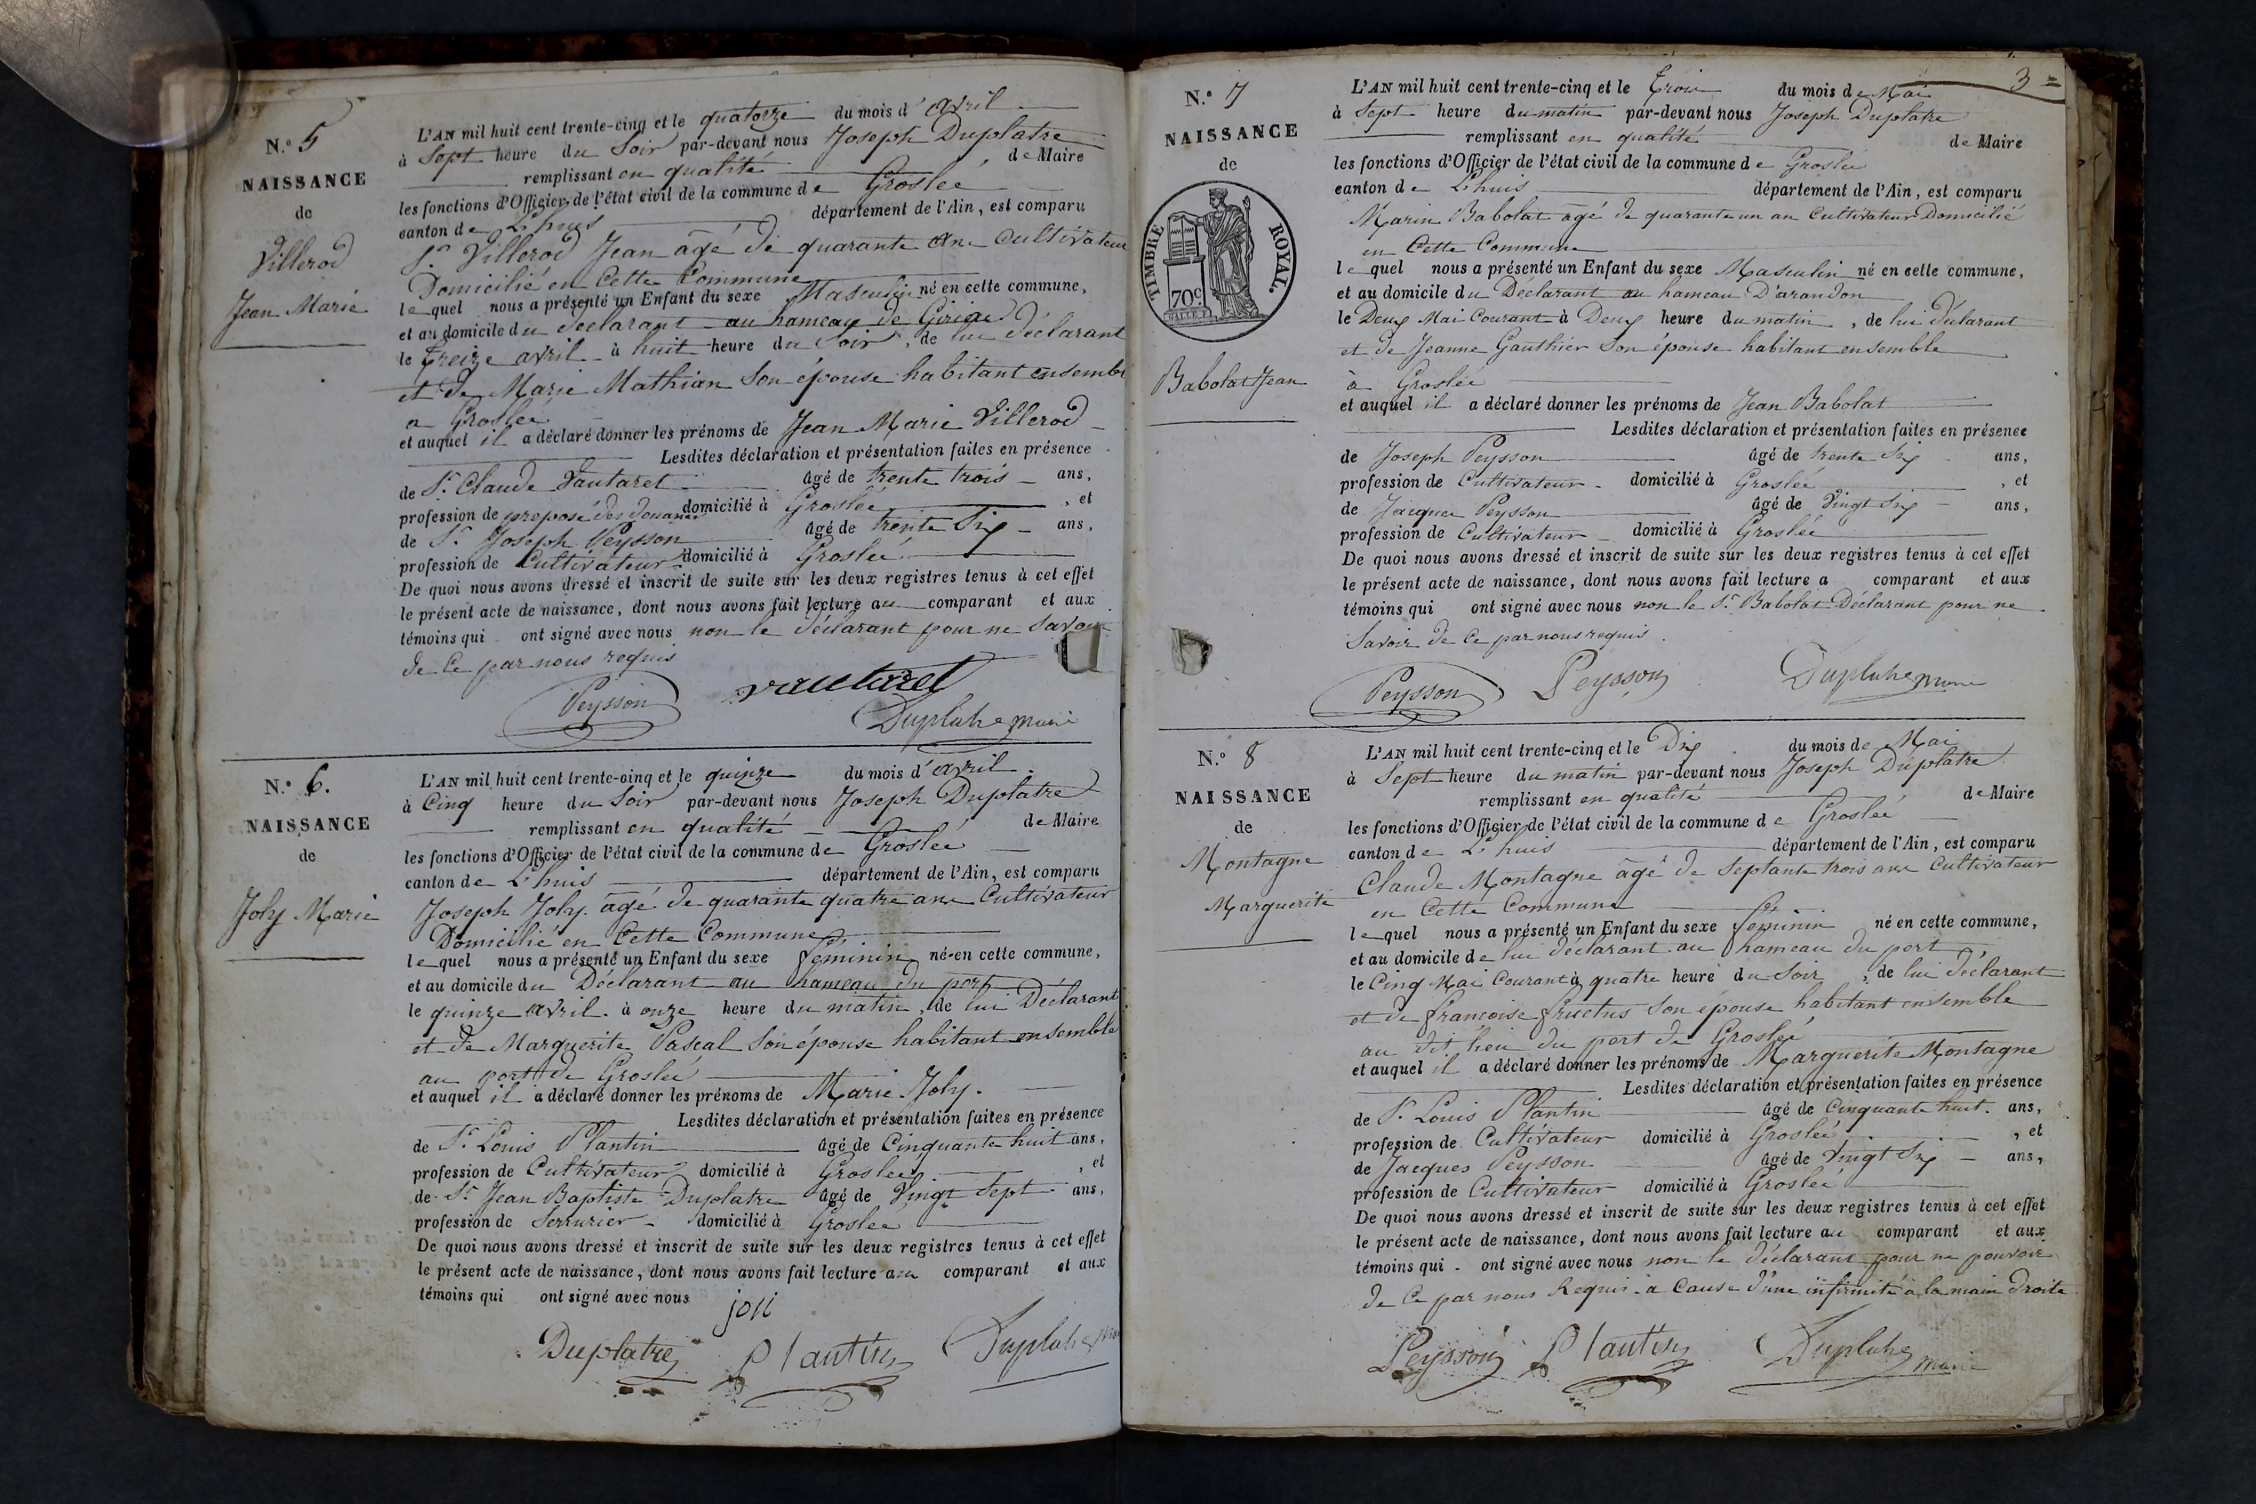 N.° 5
NAISSANCE
de
Villerod
Jean Marie
L'AN mil huit cent trente-cinq et le quatorze du mois d'avril
à Sept heure du Soir par-devant nous Joseph Duplatre
remplissant en qualité de Maire
les fonctions d'Officier de l'état civil de la commune de Groslée
canton de L'huis département de l'Ain, est comparu
Sr. Villerod Jean âgé de quarante ans cultivateur
Domicilié en Cette Commune
lequel nous a présenté un Enfant du sexe Masculin né en cette commune,
et au domicile du déclarant au hameau de
le treize avril à huit heure du Soir, de lui déclarant
et de Marie Mathian Son épouse habitant ensemble
a Groslee
et auquel il a déclaré donner les prénoms de Jean Marie Villerod
Lesdites déclaration et présentation faites en présence
de Sr. Claude Vautaret âgé de trente trois ans,
profession de preposé des douanes domicilié à Groslée, et
de Sr. Joseph Peysson âgé de trente Six ans,
profession de Cultivateur domicilié à Groslée
De quoi nous avons dressé et inscrit de suite sur les deux registres tenus à cet effet
le présent acte de naissance, dont nous avons fait lecture au comparant et aux
témoins qui ont signé avec nous non le déclarant pour ne Savoir
de Ce par nous requis
Peysson vautaret
Duplatre maire
N.° 6.
NAISSANCE
de
Joly Marie
L'AN mil huit cent trente-cinq et le quinze du mois d'avril
à Cinq heure du Soir par-devant nous Joseph Duplatre
remplissant en qualité de Maire
les fonctions d'Officier de l'état civil de la commune de Groslée
canton de L'huis département de l'Ain, est comparu
Joseph Joly âgé de quarante quatre ans Cultivateur
Domicilié en Cette Commune
lequel nous a présenté un Enfant du sexe féminin né en cette commune,
et au domicile du Déclarant au hameau du port
le quinze avril à onze heure du matin, de lui Déclarant
et de Marguerite Pascal Son épouse habitant ensemble
au port de Groslée
et auquel il a déclaré donner les prénoms de Marie Joly.
Lesdites déclaration et présentation faites en présence
de Sr. Louis Plantin âgé de Cinquante huit ans,
profession de Cultivateur domicilié à Groslée, et
de Sr. Jean Baptiste Duplatre âgé de Vingt Sept ans,
profession de Serrurier domicilié à Groslee
De quoi nous avons dressé et inscrit de suite sur les deux registres tenus à cet effet
le présent acte de naissance, dont nous avons fait lecture au comparant et aux
témoins qui ont signé avec nous
joli
Duplatre Plantin Duplatre
3
N.° 7
NAISSANCE
de
TIMBRE ROYAL.
70c.
Babolat Jean
L'AN mil huit cent trente-cinq et le trois du mois de Mai
à Sept heure du matin par-devant nous Joseph Duplatre
remplissant en qualité de Maire
les fonctions d'Officier de l'état civil de la commune de Groslée
canton de L'huis département de l'Ain, est comparu
Marin Babolat âgé de quarante un an Cultivateur Domicilié
en Cette Commune
lequel nous a présenté un Enfant du sexe Masculin né en celle commune,
et au domicile du Déclarant au hameau D'arandon
le Deux Mai Courant à Deux heure du matin, de lui Déclarant
et de Jeanne Gauthier Son épouse habitant ensemble
à Groslée
et auquel il a déclaré donner les prénoms de Jean Babolat
Lesdites déclaration et présentation faites en présence
de Joseph Peysson âgé de trente Six ans,
profession de Cultivateur domicilié à Groslée, et
de Jacques Peysson âgé de Vingt Six ans,
profession de Cultivateur domicilié à Groslée
De quoi nous avons dressé et inscrit de suite sur les deux registres tenus à cet effet
le présent acte de naissance, dont nous avons fait lecture a comparant et aux
témoins qui ont signé avec nous non le Sr. Babolat Déclarant pour ne
Savoir de Ce par nous requis.
Peysson Peysson Duplatre maire
N.° 8
NAISSANCE
de
Montagne
Marguerite
L'AN mil huit cent trente-cinq et le Dix du mois de Mai
à Sept heure du matin par-devant nous Joseph Duplatre
remplissant en qualité de Maire
les fonctions d'Officier de l'état civil de la commune de Groslée
canton de L'huis département de l'Ain, est comparu
Claude Montagne âgé de Septante trois ans Cultivateur
en Cette Commune
lequel nous a présenté un Enfant du sexe féminin né en cette commune,
et au domicile de lui déclarant au hameau du port
le Cinq Mai Courant à quatre heure du Soir, de lui déclarant
et de françoise fructus Son épouse habitant ensemble
au dit lieu du port de Groslée
et auquel il a déclaré donner les prénoms de Marguerite Montagne
Lesdites déclaration et présentation faites en présence
de Sr. Louis Plantin âgé de Cinquante huit ans,
profession de Cultivateur domicilié à Groslée, et
de Jacques Peysson âgé de Vingt Six ans,
profession de Cultivateur domicilié à Groslée
De quoi nous avons dressé et inscrit de suite sur les deux registres tenus à cet effet
le présent acte de naissance, dont nous avons fait lecture au comparant et aux
témoins qui ont signé avec nous non le déclarant pour ne pouvoir
de Ce par nous Requis à Cause d'une infirmité à la main droite
Peysson Plantin Duplatre maire